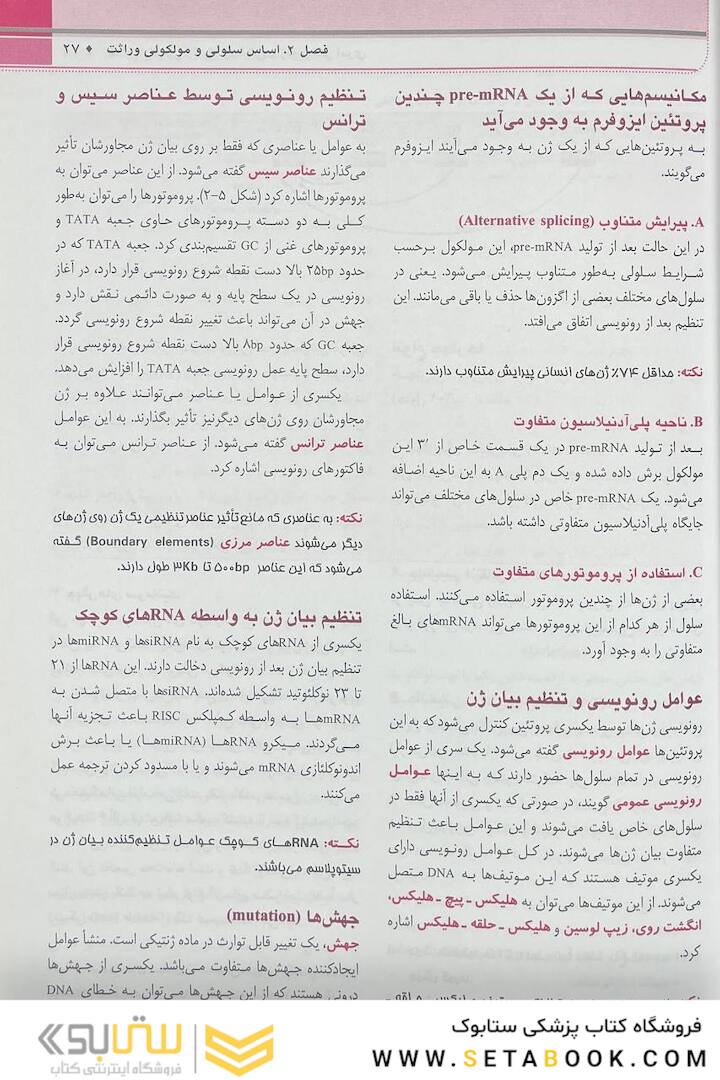 فصل ۲. اساس سلولی و مولکولی وراثت ♦ ۲۷
مکانیسم‌هایی که از یک pre-mRNA چندین
پروتئین ایزوفرم به وجود می‌آید
به پروتئین‌هایی که از یک ژن به وجود می‌آیند ایزوفرم
می‌گویند.
A. پیرایش متناوب (Alternative splicing)
در این حالت بعد از تولید pre-mRNA، این مولکول برحسب
شرایط سلولی به‌طور متناوب پیرایش می‌شود. یعنی در
سلول‌های مختلف بعضی از اگزون‌ها حذف یا باقی می‌مانند. این
تنظیم بعد از رونویسی اتفاق می‌افتد.
نکته: حداقل ۷۴٪ ژن‌های انسانی پیرایش متناوب دارند.
B. ناحیه پلی‌آدنیلاسیون متفاوت
بعد از تولید pre-mRNA در یک قسمت خاص از ′۳ این
مولکول برش داده شده و یک دم پلی A به این ناحیه اضافه
می‌شود. یک pre-mRNA خاص در سلول‌های مختلف می‌تواند
جایگاه پلی‌آدنیلاسیون متفاوتی داشته باشد.
C. استفاده از پروموتورهای متفاوت
بعضی از ژن‌ها از چندین پروموتور استفاده می‌کنند. استفاده
سلول از هر کدام از این پروموتورها می‌تواند mRNAهای بالغ
متفاوتی را به وجود آورد.
عوامل رونویسی و تنظیم بیان ژن
رونویسی ژن‌ها توسط یکسری پروتئین کنترل می‌شود که به این
پروتئین‌ها عوامل رونویسی گفته می‌شود. یک سری از عوامل
رونویسی در تمام سلول‌ها حضور دارند که به اینها عوامل
رونویسی عمومی گویند، در صورتی که یکسری از آنها فقط در
سلول‌های خاص یافت می‌شوند و این عوامل باعث تنظیم
متفاوت بیان ژن‌ها می‌شوند. در کل عوامل رونویسی دارای
یکسری موتیف هستند که این موتیف‌ها به DNA متصل
می‌شوند. از این موتیف‌ها می‌توان به هلیکس - پیچ - هلیکس،
انگشت روی، زیپ لوسین و هلیکس - حلقه - هلیکس اشاره
کرد.
تنظیم رونویسی توسط عناصر سیس و
ترانس
به عوامل یا عناصری که فقط بر روی بیان ژن مجاورشان تأثیر
می‌گذارند عناصر سیس گفته می‌شود. از این عناصر می‌توان به
پروموتورها اشاره کرد (شکل ۵-۲). پروموتورها را می‌توان به‌طور
کلی به دو دسته پروموتورهای حاوی جعبه TATA و
پروموتورهای غنی از GC تقسیم‌بندی کرد. جعبه TATA که در
حدود ۲۵bp بالا دست نقطه شروع رونویسی قرار دارد، در آغاز
رونویسی در یک سطح پایه و به صورت دائمی نقش دارد و
جهش در آن می‌تواند باعث تغییر نقطه شروع رونویسی گردد.
جعبه GC که حدود ۸bp بالا دست نقطه شروع رونویسی قرار
دارد، سطح پایه عمل رونویسی جعبه TATA را افزایش می‌دهد.
یکسری از عوامل یا عناصر می‌توانند علاوه بر ژن
مجاورشان روی ژن‌های دیگرنیز تأثیر بگذارند. به این عوامل
عناصر ترانس گفته می‌شود. از عناصر ترانس می‌توان به
فاکتورهای رونویسی اشاره کرد.
نکته: به عناصری که مانع تأثیر عناصر تنظیمی یک ژن روی ژن‌های
دیگر می‌شوند عناصر مرزی (Boundary elements) گفته
می‌شود که این عناصر ۵۰۰bp تا ۳Kb طول دارند.
تنظیم بیان ژن به واسطه RNAهای کوچک
یکسری از RNAهای کوچک به نام siRNAها و miRNAها در
تنظیم بیان ژن بعد از رونویسی دخالت دارند. این RNAها از ۲۱
تا ۲۳ نوکلئوتید تشکیل شده‌اند. siRNAها با متصل شدن به
mRNAها به واسطه کمپلکس RISC باعث تجزیه آنها
می‌گردند. میکرو RNAها (miRNAها) یا باعث برش
اندونوکلئازی mRNA می‌شوند و یا با مسدود کردن ترجمه عمل
می‌کنند.
نکته: RNAهای کوچک عوامل تنظیم‌کننده بیان ژن در
سیتوپلاسم می‌باشند.
جهش‌ها (mutation)
جهش، یک تغییر قابل توارث در ماده ژنتیکی است. منشأ عوامل
ایجادکننده جهش‌ها متفاوت می‌باشد. یکسری از جهش‌ها
درونی هستند که از این جهش‌ها می‌توان به خطای DNA
فروشگاه کتاب پزشکی ستابوک
WWW.SETABOOK.COM
ستابوک
فروشگاه اینترنتی کتاب